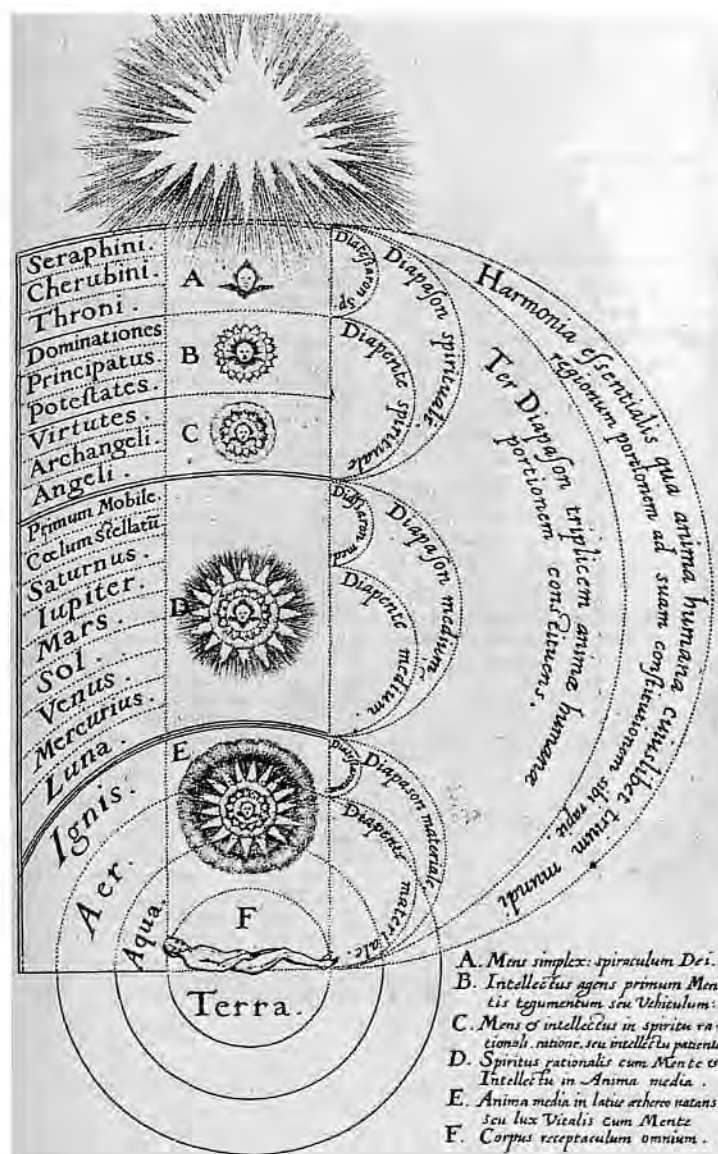 Seraphini.
Cherubini.
Throni.
Dominationes
Principatus.
Potestates.
Virtutes.
Archangeli.
Angeli.
Primum Mobile.
Cœlum Stellatū
Saturnus.
Iupiter.
Mars.
Sol.
Venus.
Mercurius.
Luna.
Ignis.
Aer.
Aqua.
Terra.
A
B
C
D
E
F
Diateſſaron sp.
Diapaſon spirituale.
Diapente spirituale
med.
Diapaſon medium.
Diapente medium.
Diapason materiale
Diapente materiale.
Ter Diapaſon triplicem animæ humanæ
portionem constituens.
Harmonia eſſentialis qua anima humana cuiuslibet trium mundi
regionum portionem ad suam conſtitutionem sibi rapit.
A. Mens simplex: spiraculum Dei.
B. Intellectus agens primum Men
tis tegumentum seu Vehiculum:
C. Mens & intellectus in spiritu ra
tionali, ratione, seu intellectu
D. Spiritus rationalis cum Mente &
Intellectu in Anima media.
E. Anima media in æthereo natans
seu lux Vitalis cum Mente
F. Corpus receptaculum omnium.